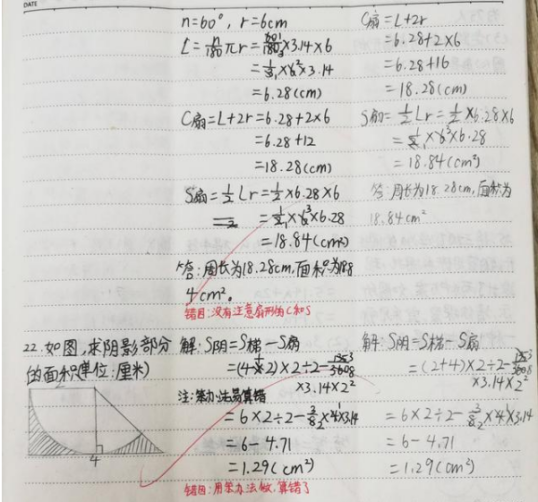 DATE
n=60°, r=6cm
L=n/180 πr=60/180×3.14×6
=1/3×6×3.14
=6.28(cm)
C扇=L+2r=6.28+2×6
=6.28+12
=18.28(cm)
S扇=1/2Lr=1/2×6.28×6
=1/2×6×6.28
=18.84(cm²)
答:周长为18.28cm,面积为18.8
4cm²。
错因:没有注意扇形的C和S
C扇=L+2r
=6.28+2×6
=6.28+16
=18.28(cm)
S扇=1/2Lr=1/2×6.28×6
=1/2×6×6.28
=18.84(cm²)
答:周长为18.28cm,面积为
18.84cm²
22.如图,求阴影部分
的面积(单位:厘米)
4
解:S阴=S梯-S扇
=(4+2)×2÷2-135/360
×3.14×2²
注:笨办法易算错
=6×2÷2-3/8×4×3.14
=6-4.71
=1.29(cm²)
错因:用笨办法做,算错了
解:S阴=S梯-S扇
=(2+4)×2÷2-135/360
×3.14×2²
=6×2÷2-3/8×4×3.14
=6-4.71
=1.29(cm²)